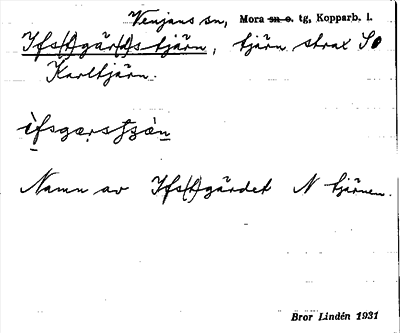 Venjans sn, Mora sn o. tg, Kopparb. l.
Ifs(t)gär(d)s tjärn, tjärn strax SO
Karltjärn.
Namn av Ifs(t)gärdet N tjärnen.
Bror Lindén 1931